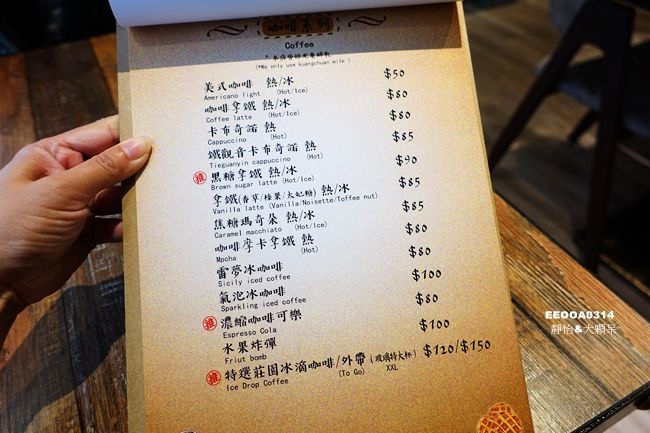 咖啡系列
Coffee
(*We only use kuangchuan milk )
美式咖啡 熱/冰 $50
Americano light (Hot/Ice)
咖啡拿鐵 熱/冰 $80
Coffee latte (Hot/Ice)
卡布奇諾 熱 $80
Cappuccino (Hot)
鐵觀音卡布奇諾 熱 $85
Tieguanyin cappuccino (Hot)
推 黑糖拿鐵 熱/冰 $90
Brown sugar latte (Hot/Ice)
拿鐵(香草/榛果/太妃糖) 熱/冰 $85
Vanilla latte (Vanilla/Noisette/Toffee nut)
焦糖瑪奇朵 熱/冰 $85
Caramel macchiato (Hot/Ice)
咖啡摩卡拿鐵 熱 $80
Mocha (Hot)
雷夢冰咖啡 $80
Sicily iced coffee
氣泡冰咖啡 $100
Sparkling iced coffee
推 濃縮咖啡可樂 $80
Espresso Cola
水果炸彈 $100
Friut bomb
推 特選莊園冰滴咖啡/外帶 (玻璃特大杯) $120/$150
Ice Drop Coffee (To Go) XXL
EEOOA0314
靜怡&大顆呆